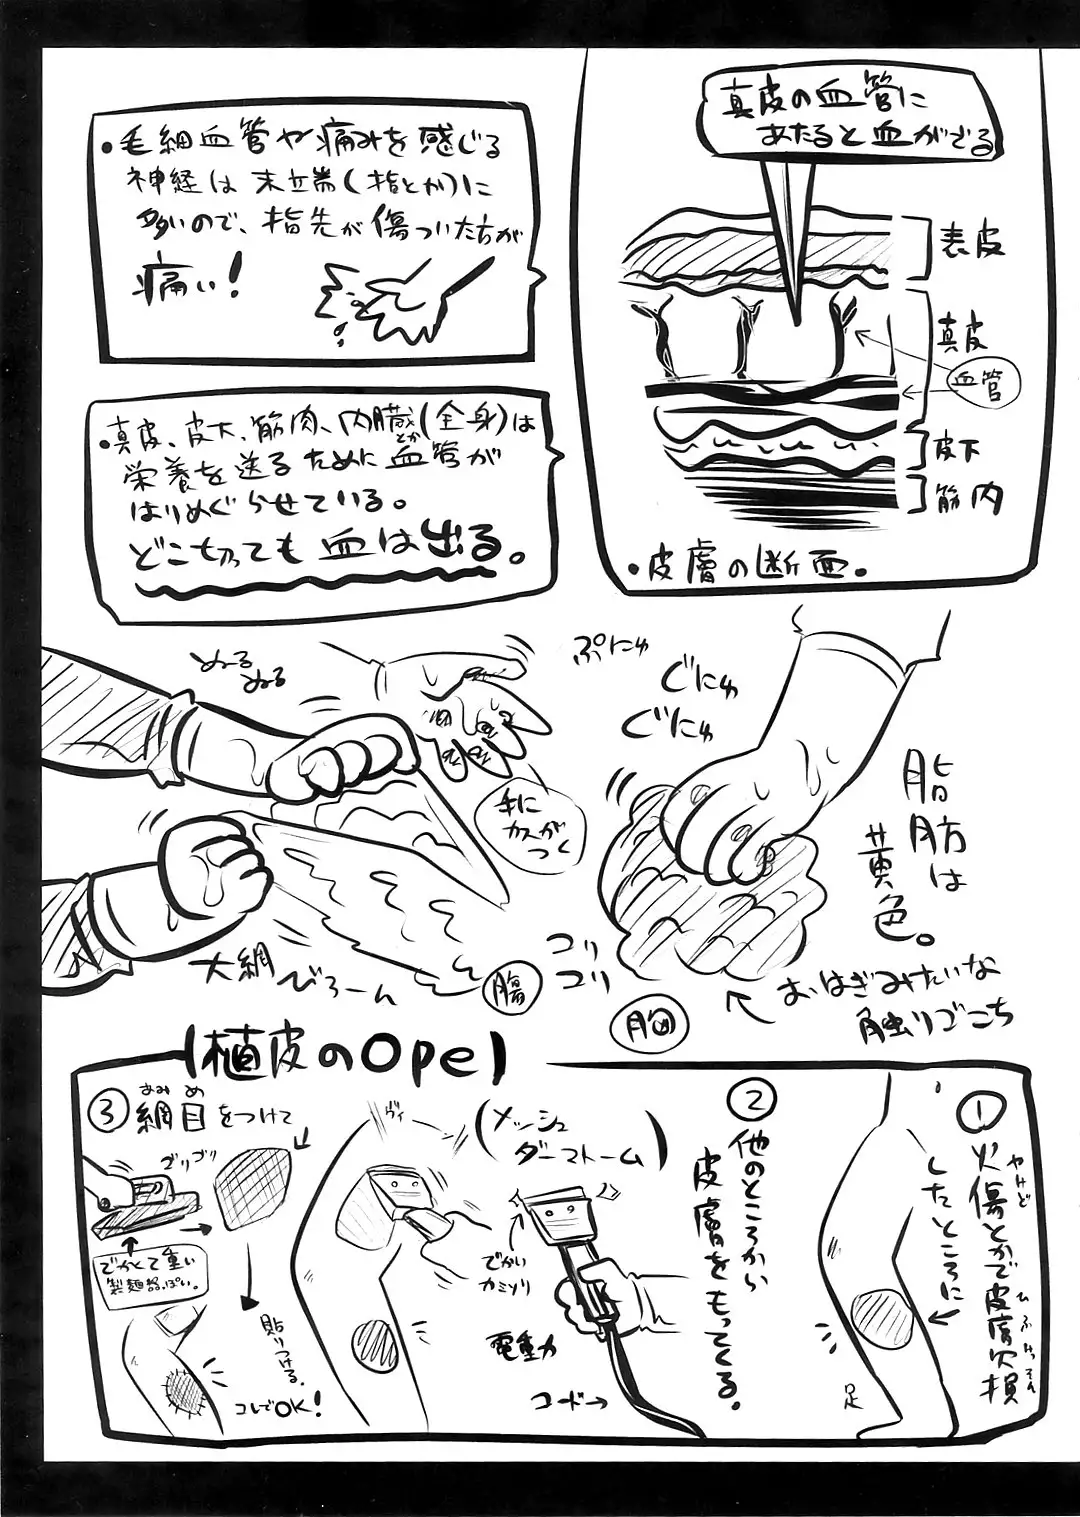 真皮の血管に
あたると血がでる
表皮
真皮
血管
皮下
筋肉
・皮膚の断面。
・毛細血管や痛みを感じる
神経は末端(指とか)に
多いので、指先が傷ついた方が
痛い!
・真皮、皮下、筋肉、内臓とか(全身)は
栄養を送るために血管が
はりめぐらせている。
どこ切っても血は出る。
ぷにゅ
ぐにゅ
ぐにゅ
脂肪は
黄色。
おはぎみたいな
触りごこち
胸
コリ
コリ
ぬるぬる
手に
カスが
つく
大網
びろーん
腸
【植皮のOpe】
①
火傷とかで皮膚欠損
やけど
ひふけっそん
したところに
足
②
他のところから
皮膚をもってくる。
(メッシュ
ダーマトーム)
でかい
カミソリ
電動
コード→
ヴィ
③
網目をつけて
あみめ
ゴリゴリ
でかくて重い
製麺器っぽい。
貼りつける。
コレでOK!